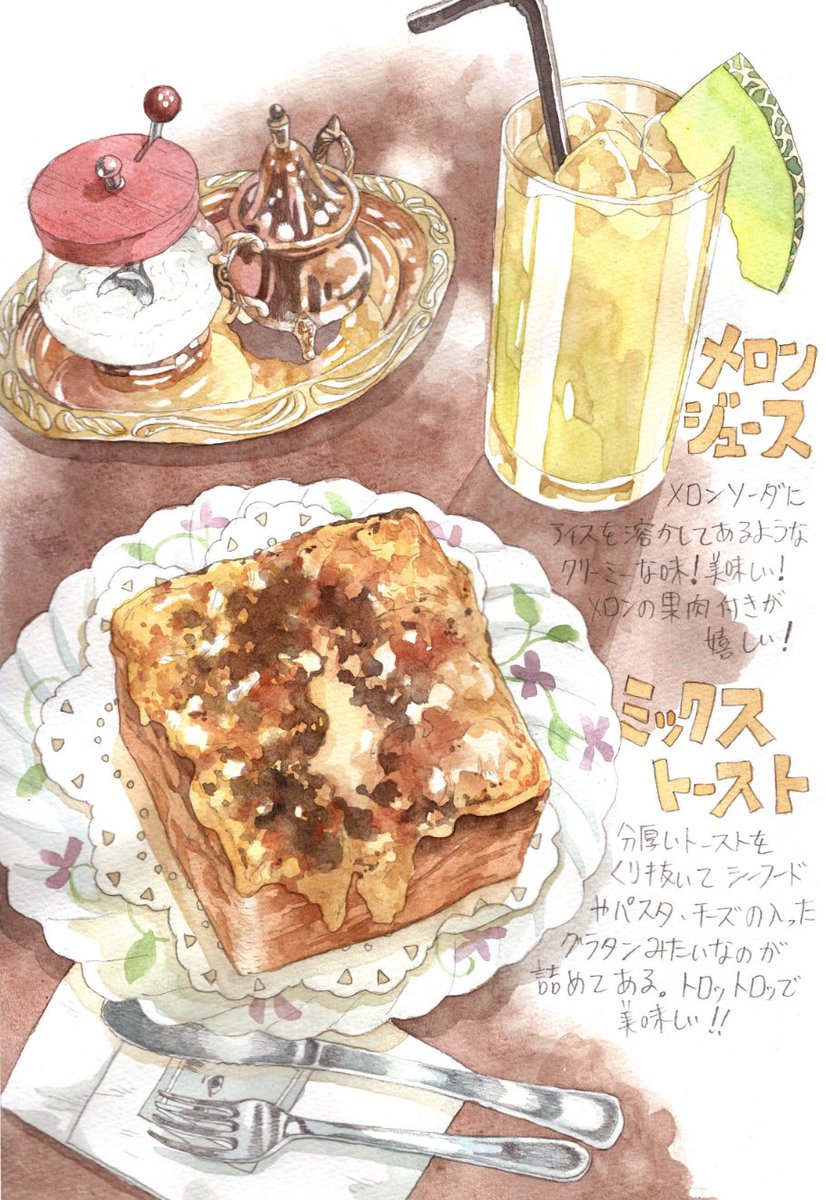 メロン
ジュース
メロンソーダに
アイスを溶かしてあるような
クリーミーな味!美味しい!
メロンの果肉付きが
嬉しい!
ミックス
トースト
分厚いトーストを
くり抜いてシーフード
やパスタ、チーズの入った
グラタンみたいなのが
詰めてある。トロットロッで
美味しい!!